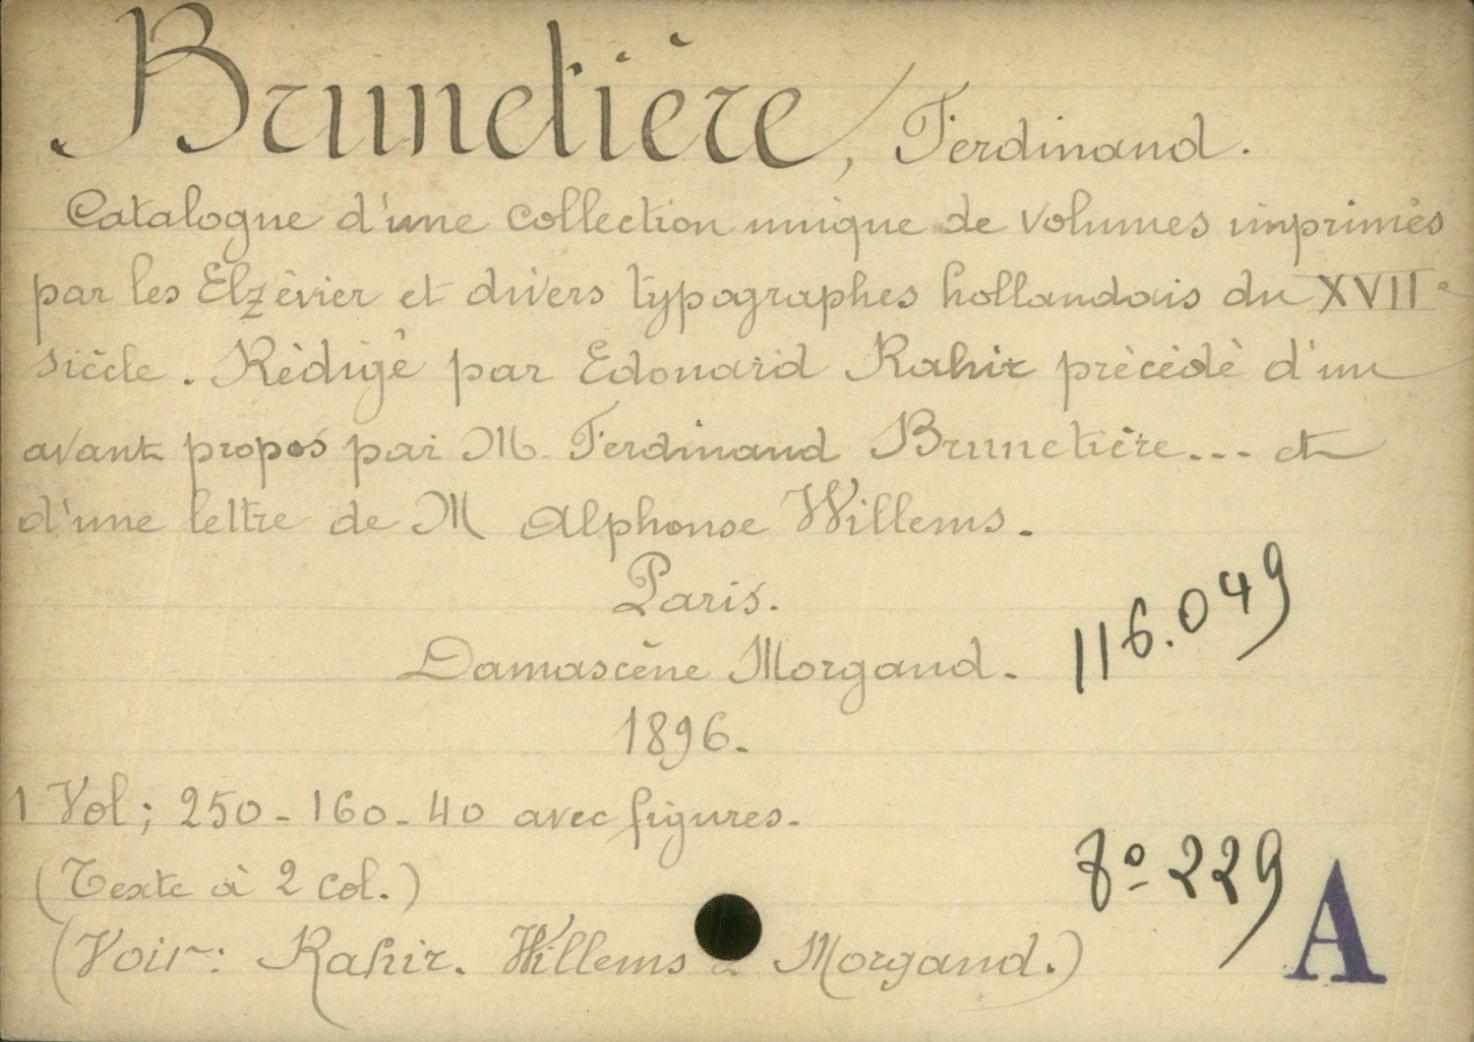 Brunetière, Ferdinand.
Catalogue d'une collection unique de volumes imprimés
par les Elzévier et divers typographes hollandais du XVIIe
siècle. Rédigé par Edouard Rahir précédé d'un
avant propos par M. Ferdinand Brunetière... et
d'une lettre de M Alphonse Willems.
Paris.
Damascène Morgand.
116.049
1896.
1 Vol; 250-160-40 avec figures.
(Texte à 2 col.)
8º 229
A
(Voir: Rahir. Willems Morgand.)